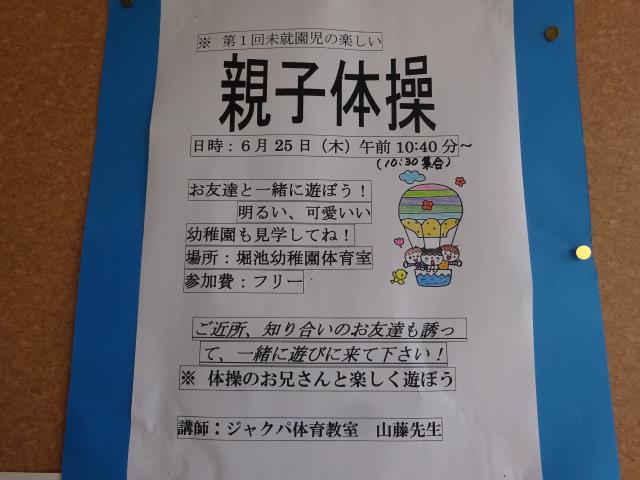 ※ 第１回未就園児の楽しい
親子体操
日時：６月２５日（木）午前 10:40 分～
(10:30 集合)
お友達と一緒に遊ぼう！
明るい、可愛いい
幼稚園も見学してね！
場所：堀池幼稚園体育室
参加費：フリー
ご近所、知り合いのお友達も誘っ
て、一緒に遊びに来て下さい！
※ 体操のお兄さんと楽しく遊ぼう
講師：ジャクパ体育教室 山藤先生